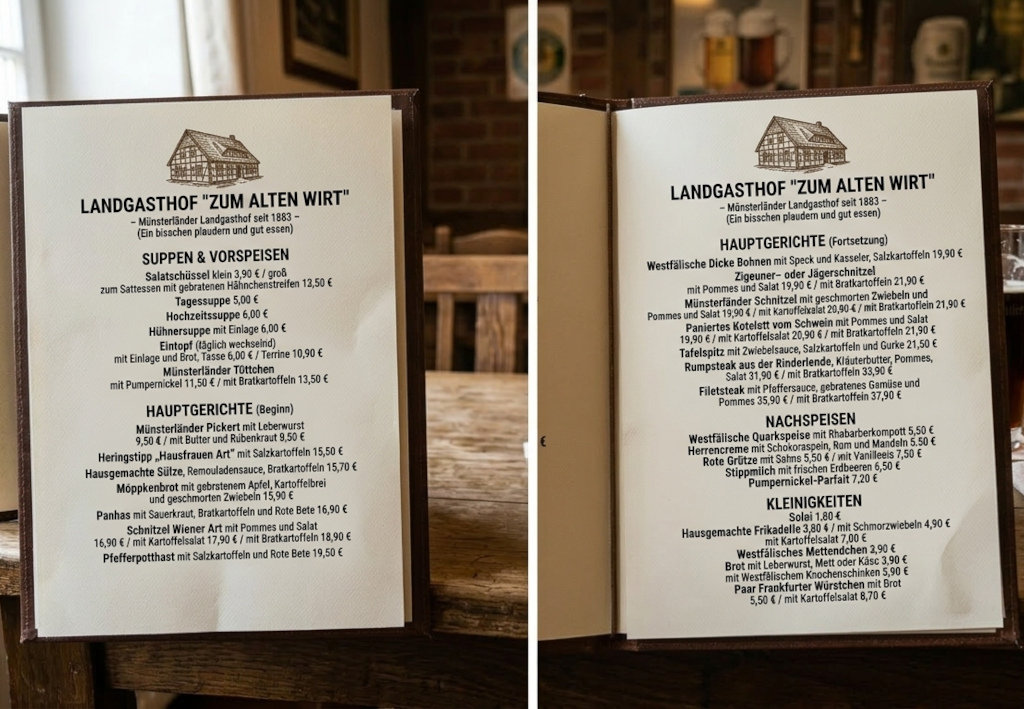 LANDGASTHOF "ZUM ALTEN WIRT"
– Münsterländer Landgasthof seit 1883 –
(Ein bisschen plaudern und gut essen)
SUPPEN & VORSPEISEN
Salatschüssel klein 3,90 € / groß
zum Sattessen mit gebratenen Hähnchenstreifen 13,50 €
Tagessuppe 5,00 €
Hochzeitssuppe 6,00 €
Hühnersuppe mit Einlage 6,00 €
Eintopf (täglich wechselnd)
mit Einlage und Brot, Tasse 6,00 € / Terrine 10,90 €
Münsterländer Töttchen
mit Pumpernickel 11,50 € / mit Bratkartoffeln 13,50 €
HAUPTGERICHTE (Beginn)
Münsterländer Pickert mit Leberwurst
9,50 € / mit Butter und Rübenkraut 9,50 €
Heringstipp „Hausfrauen Art" mit Salzkartoffeln 15,50 €
Hausgemachte Sülze, Remouladensauce, Bratkartoffeln 15,70 €
Möppkenbrot mit gebrstenem Apfel, Kartoffelbrei
und geschmorten Zwiebeln 15,90 €
Panhas mit Sauerkraut, Bratkartoffeln und Rote Bete 16,90 €
Schnitzel Wiener Art mit Pommes und Salat
16,90 € / mit Kartoffelsalat 17,90 € / mit Bratkartoffeln 18,90 €
Pfefferpotthast mit Salzkartoffeln und Rote Bete 19,50 €
€
LANDGASTHOF "ZUM ALTEN WIRT"
– Münsterländer Landgasthof seit 1883 –
(Ein bisschen plaudern und gut essen)
HAUPTGERICHTE (Fortsetzung)
Westfälische Dicke Bohnen mit Speck und Kasseler, Salzkartoffeln 19,90 €
Zigeuner– oder Jägerschnitzel
mit Pommes und Salat 19,90 € / mit Bratkartoffeln 21,90 €
Münsterländer Schnitzel mit geschmorten Zwiebeln und
Pommes und Salat 19,90 € / mit Kartoffelsalat 20,90 € / mit Bratkartoffeln 21,90 €
Paniertes Kotelstt vom Schwein mit Pommes und Salat
19,90 € / mit Kartoffelsalat 20,90 € / mit Bratkartoffeln 21,90 €
Tafelspitz mit Zwiebelsauce, Salzkartoffeln und Gurke 21,50 €
Rumpsteak aus der Rinderlende, Kläuterbutter, Pommes,
Salat 31,90 € / mit Bratkartoffeln 33,90 €
Filetsteak mit Pfeffersauce, gebratenes Gamüse und
Pommes 35,90 € / mit Bratkartoffein 37,90 €
NACHSPEISEN
Westfälische Quarkspeise mit Rhabarberkompott 5,50 €
Herrencreme mit Schokoraspein, Rum und Mandeln 5.50 €
Rote Grütze mit Sahns 5,50 € / mit Vanilleeis 7,50 €
Stippmilch mit frischen Erdbeeren 6,50 €
Pumpernickel-Parfait 7,20 €
KLEINIGKEITEN
Solei 1,80 €
Hausgemachte Frikadelle 3,80 € / mit Schmorzwiebeln 4,90 €
mit Kartoffelsalat 7,00 €
Westfälisches Mettendchen 2,90 €
Brot mit Leberwurst, Mett oder Käse 3,90 €
mit Westfälischem Knochenschinken 5,90 €
Paar Frankfurter Würstchen mit Brot
5,50 € / mit Kartoffelsalat 8,70 €